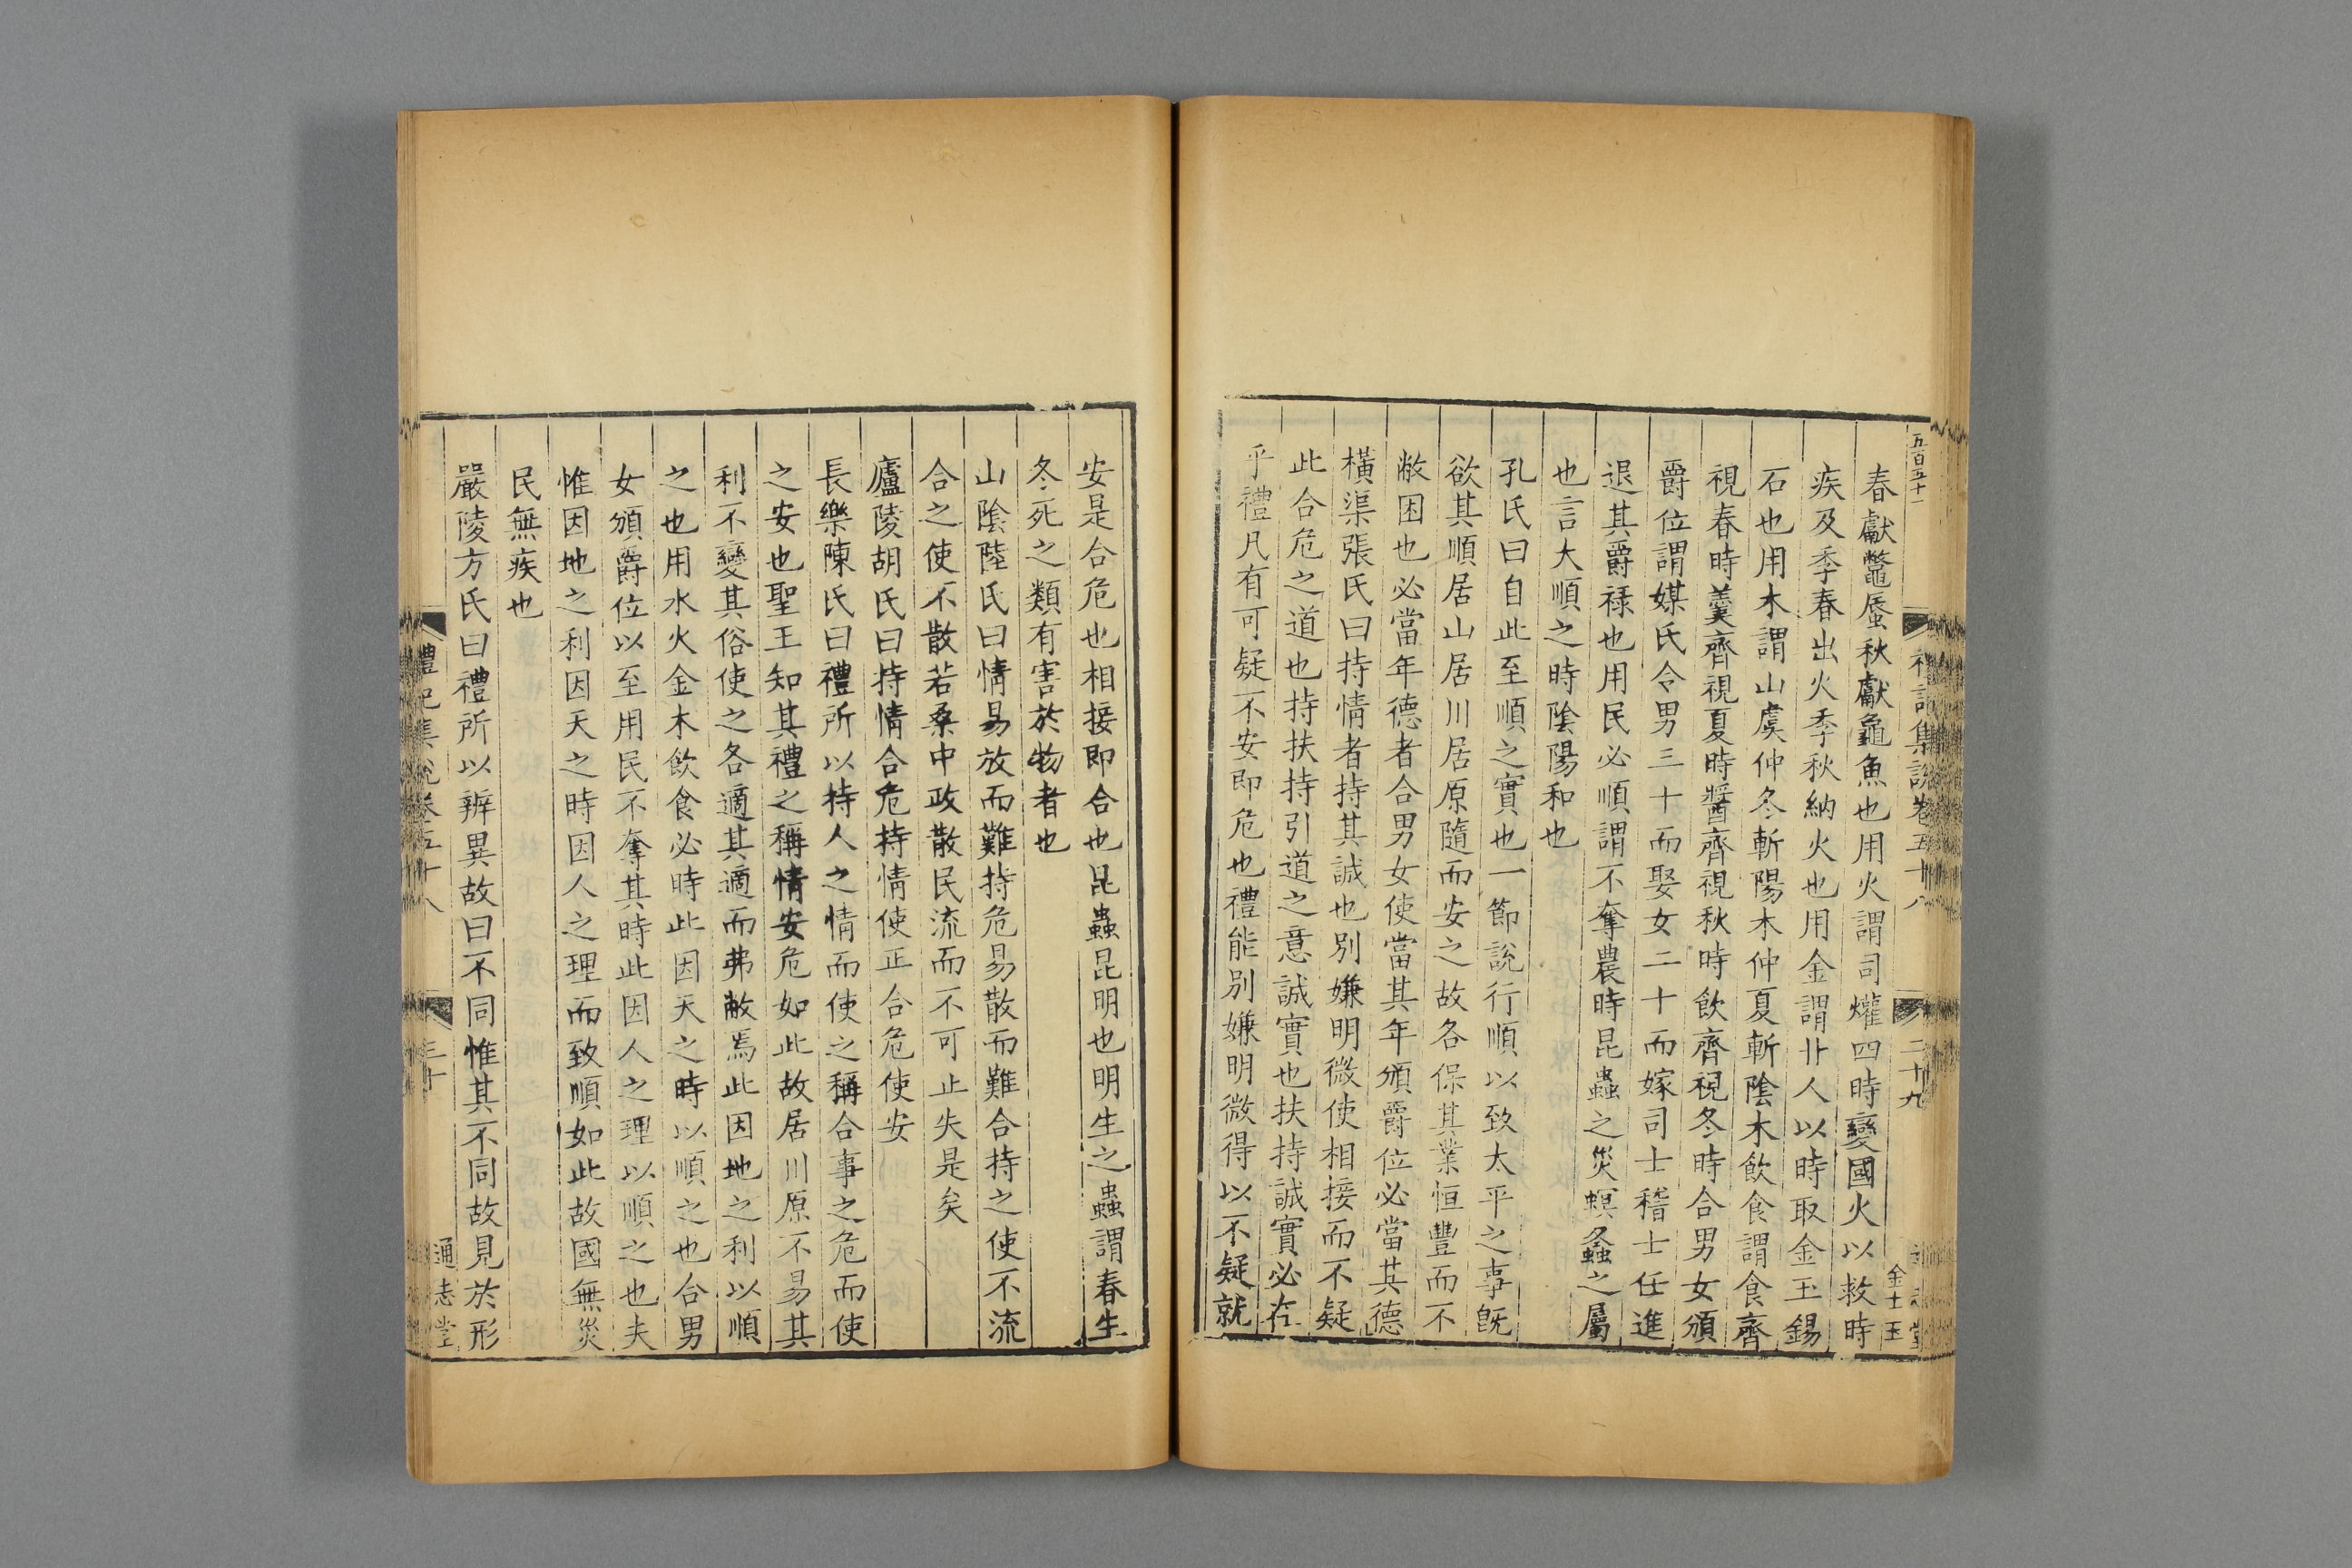 五百五十一
禮記集說卷五十八
二十九
金士玉
春獻鼈蜃秋獻龜魚也用火謂司爟四時變國火以救時
疾及季春出火季秋納火也用金謂丱人以時取金玉錫
石也用木謂山虞仲冬斬陽木仲夏斬陰木飲食謂食齊
視春時羹齊視夏時醬齊視秋時飲齊視冬時合男女頒
爵位謂媒氏令男三十而娶女二十而嫁司士稽士任進
退其爵祿也用民必順謂不奪農時昆蟲之災螟螽之屬
也言大順之時陰陽和也
孔氏曰自此至順之實也一節說行順以致太平之事旣
欲其順居山居川居原隨而安之故各保其業恒豐而不
敝困也必當年德者合男女使當其年頒爵位必當其德
橫渠張氏曰持情者持其誠也別嫌明微使相接而不疑
此合危之道也持扶持引道之意誠實也扶持誠實必在
乎禮凡有可疑不安即危也禮能別嫌明微得以不疑就
安是合危也相接即合也昆蟲昆明也明生之蟲謂春生
冬死之類有害於物者也
山陰陸氏曰情易放而難持危易散而難合持之使不流
合之使不散若桑中政散民流而不可止失是矣
廬陵胡氏曰持情合危持情使正合危使安
長樂陳氏曰禮所以持人之情而使之稱合事之危而使
之安也聖王知其禮之稱情安危如此故居川原不易其
利不變其俗使之各適其適而弗敝焉此因地之利以順
之也用水火金木飲食必時此因天之時以順之也合男
女頒爵位以至用民不奪其時此因人之理以順之也夫
惟因地之利因天之時因人之理而致順如此故國無災
民無疾也
嚴陵方氏曰禮所以辨異故曰不同惟其不同故見於形
禮記集說卷五十八
三十
通志堂